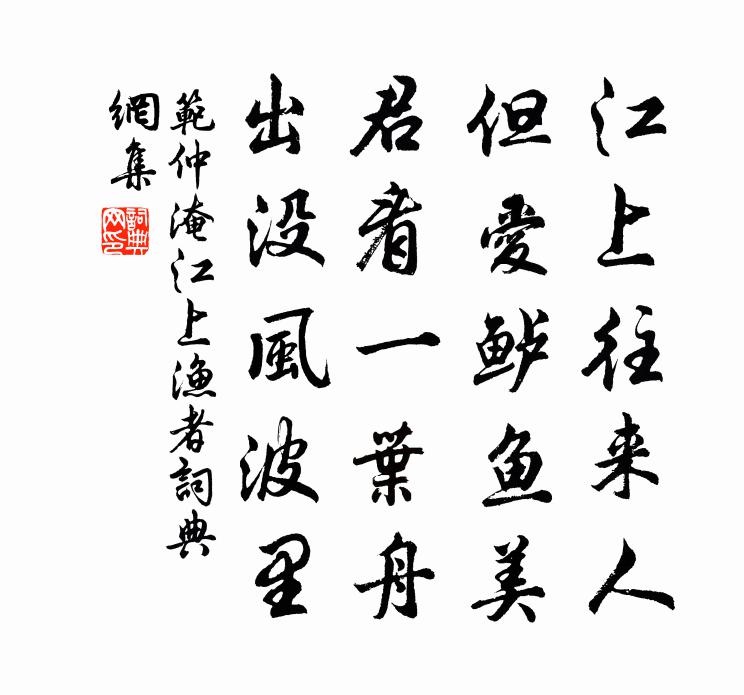 江上往来人
但愛鲈鱼美
君看一葉舟
出没風波里
範仲淹江上漁者詞典
網集
詞典
网印